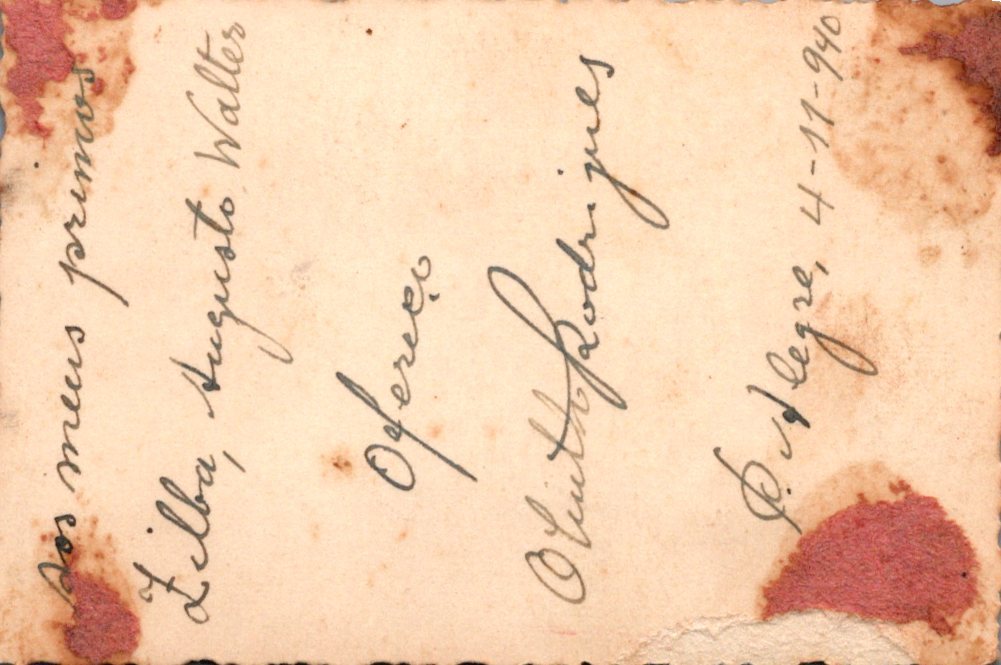 Aos meus primos
Zilba, Augusto Walter
Ofereço
Olintho Rodrigues
P. Alegre, 4-11-940